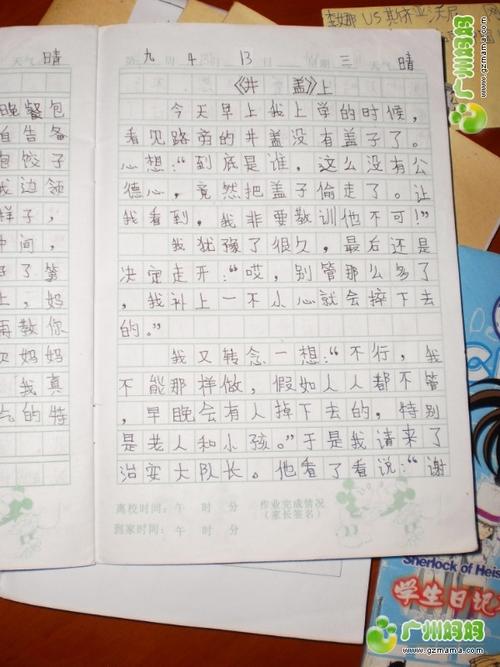 天气 晴
晚餐包
自告备
包饺子
我边领
样子，
中间，
上，妈
再教你
妈妈
我真
气的特
第九周 4 13日 星期三 天气 晴
《井盖》上
今天早上我上学的时候，
看见路旁的井盖没有盖子了。
心想：“到底是谁，这么没有公
德心，竟然把盖子偷走了。让
我看到，我非要教训他不可！”
我犹豫了很久，最后还是
决定走开：“哎，别管那么多了
，我补上一不小心就会摔下去
的。”
我又转念一想：“不行，我
不能那样做，假如人人都不管
，早晚会有人掉下去的，特别
是老人和小孩。”于是我请来了
治安大队长。他看了看说：“谢
离校时间：午 时 分 作业完成情况
到家时间：午 时 分 （家长签名）
李娜 US
Sherlock of Heis
学生日记
妈妈
广州
www.gzmama.com
广州妈妈
www.gzmama.com